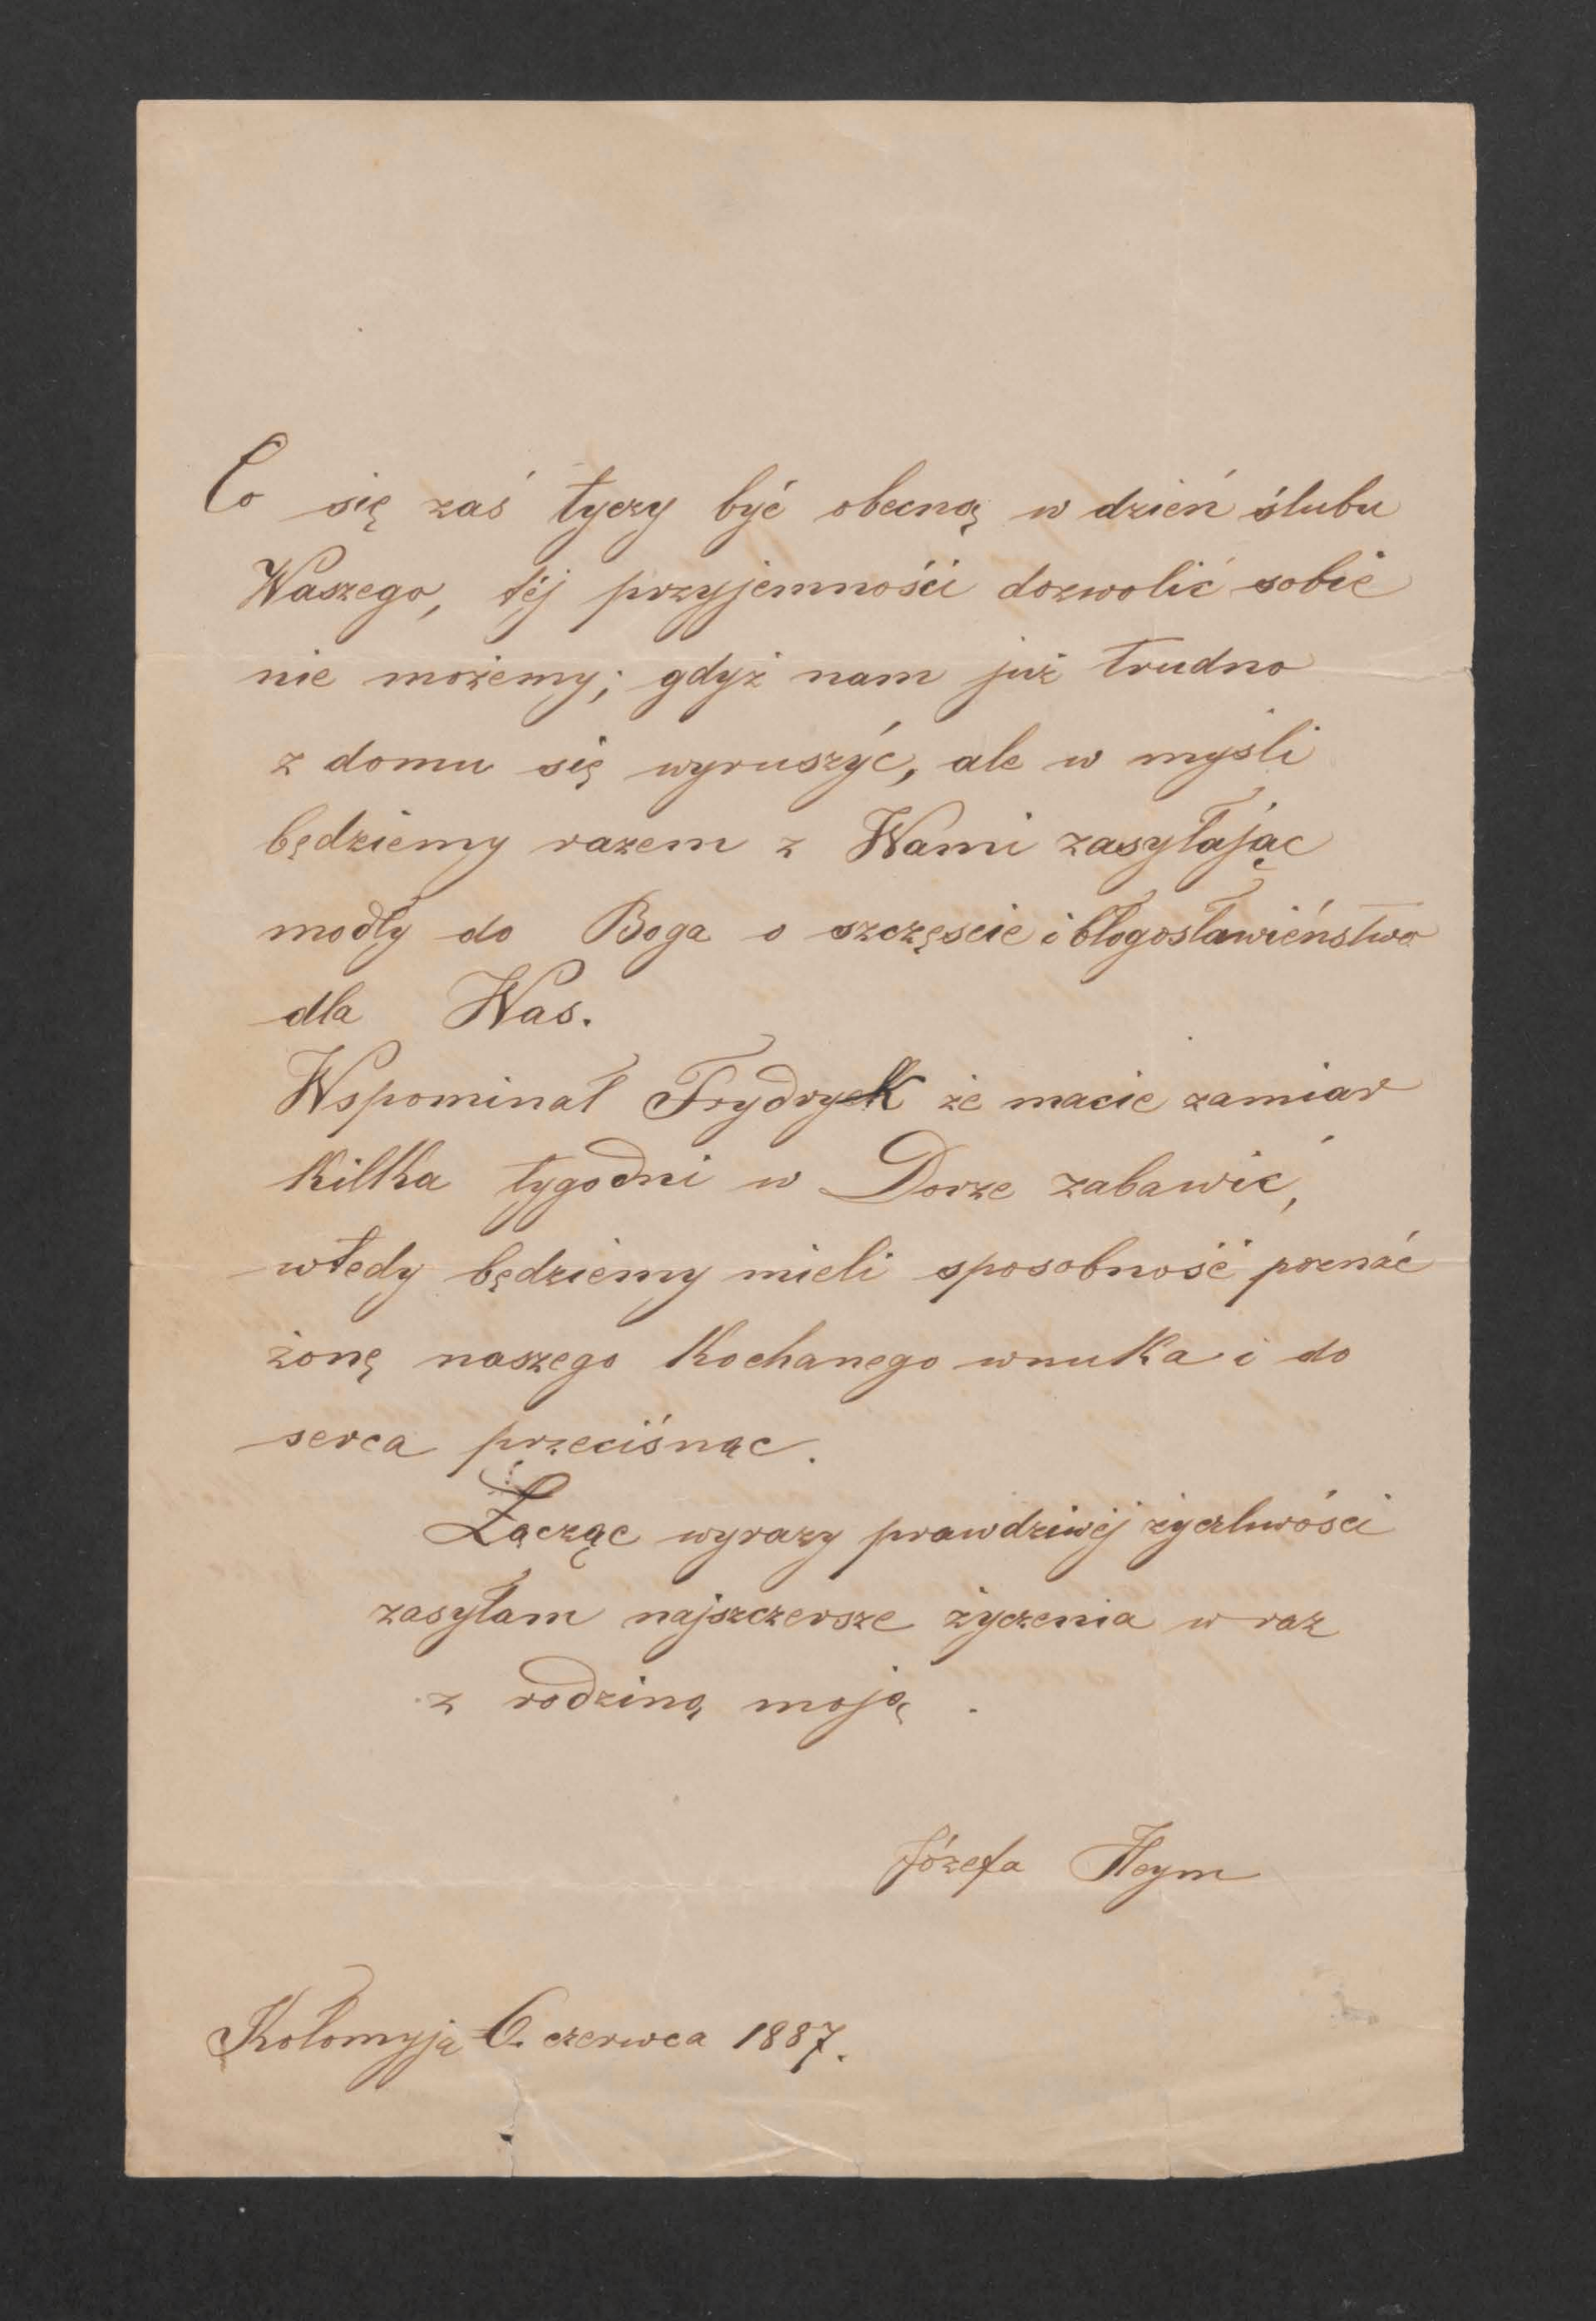 Co się zaś tyczy być obecną w dzień ślubu
Waszego, téj przyjemności dozwolić sobie
nie możemy; gdyż nam już trudno
z domu się wyruszyć, ale w myśli
będziemy razem z Wami zasyłając
modły do Boga o szczęście i błogosławieństwo
dla Was.
Wspominał Frydryk że macie zamiar
kilka tygodni w Dorze zabawić,
wtedy będziemy mieli sposobność poznać
żonę naszego kochanego wnuka i do
serca przeciśnąc.
Łącząc wyrazy prawdziwéj życzliwości
zasyłam najszczersze życzenia w raz
z rodziną moją.
Józefa Heym
Kołomyja 6. czerwca 1887.